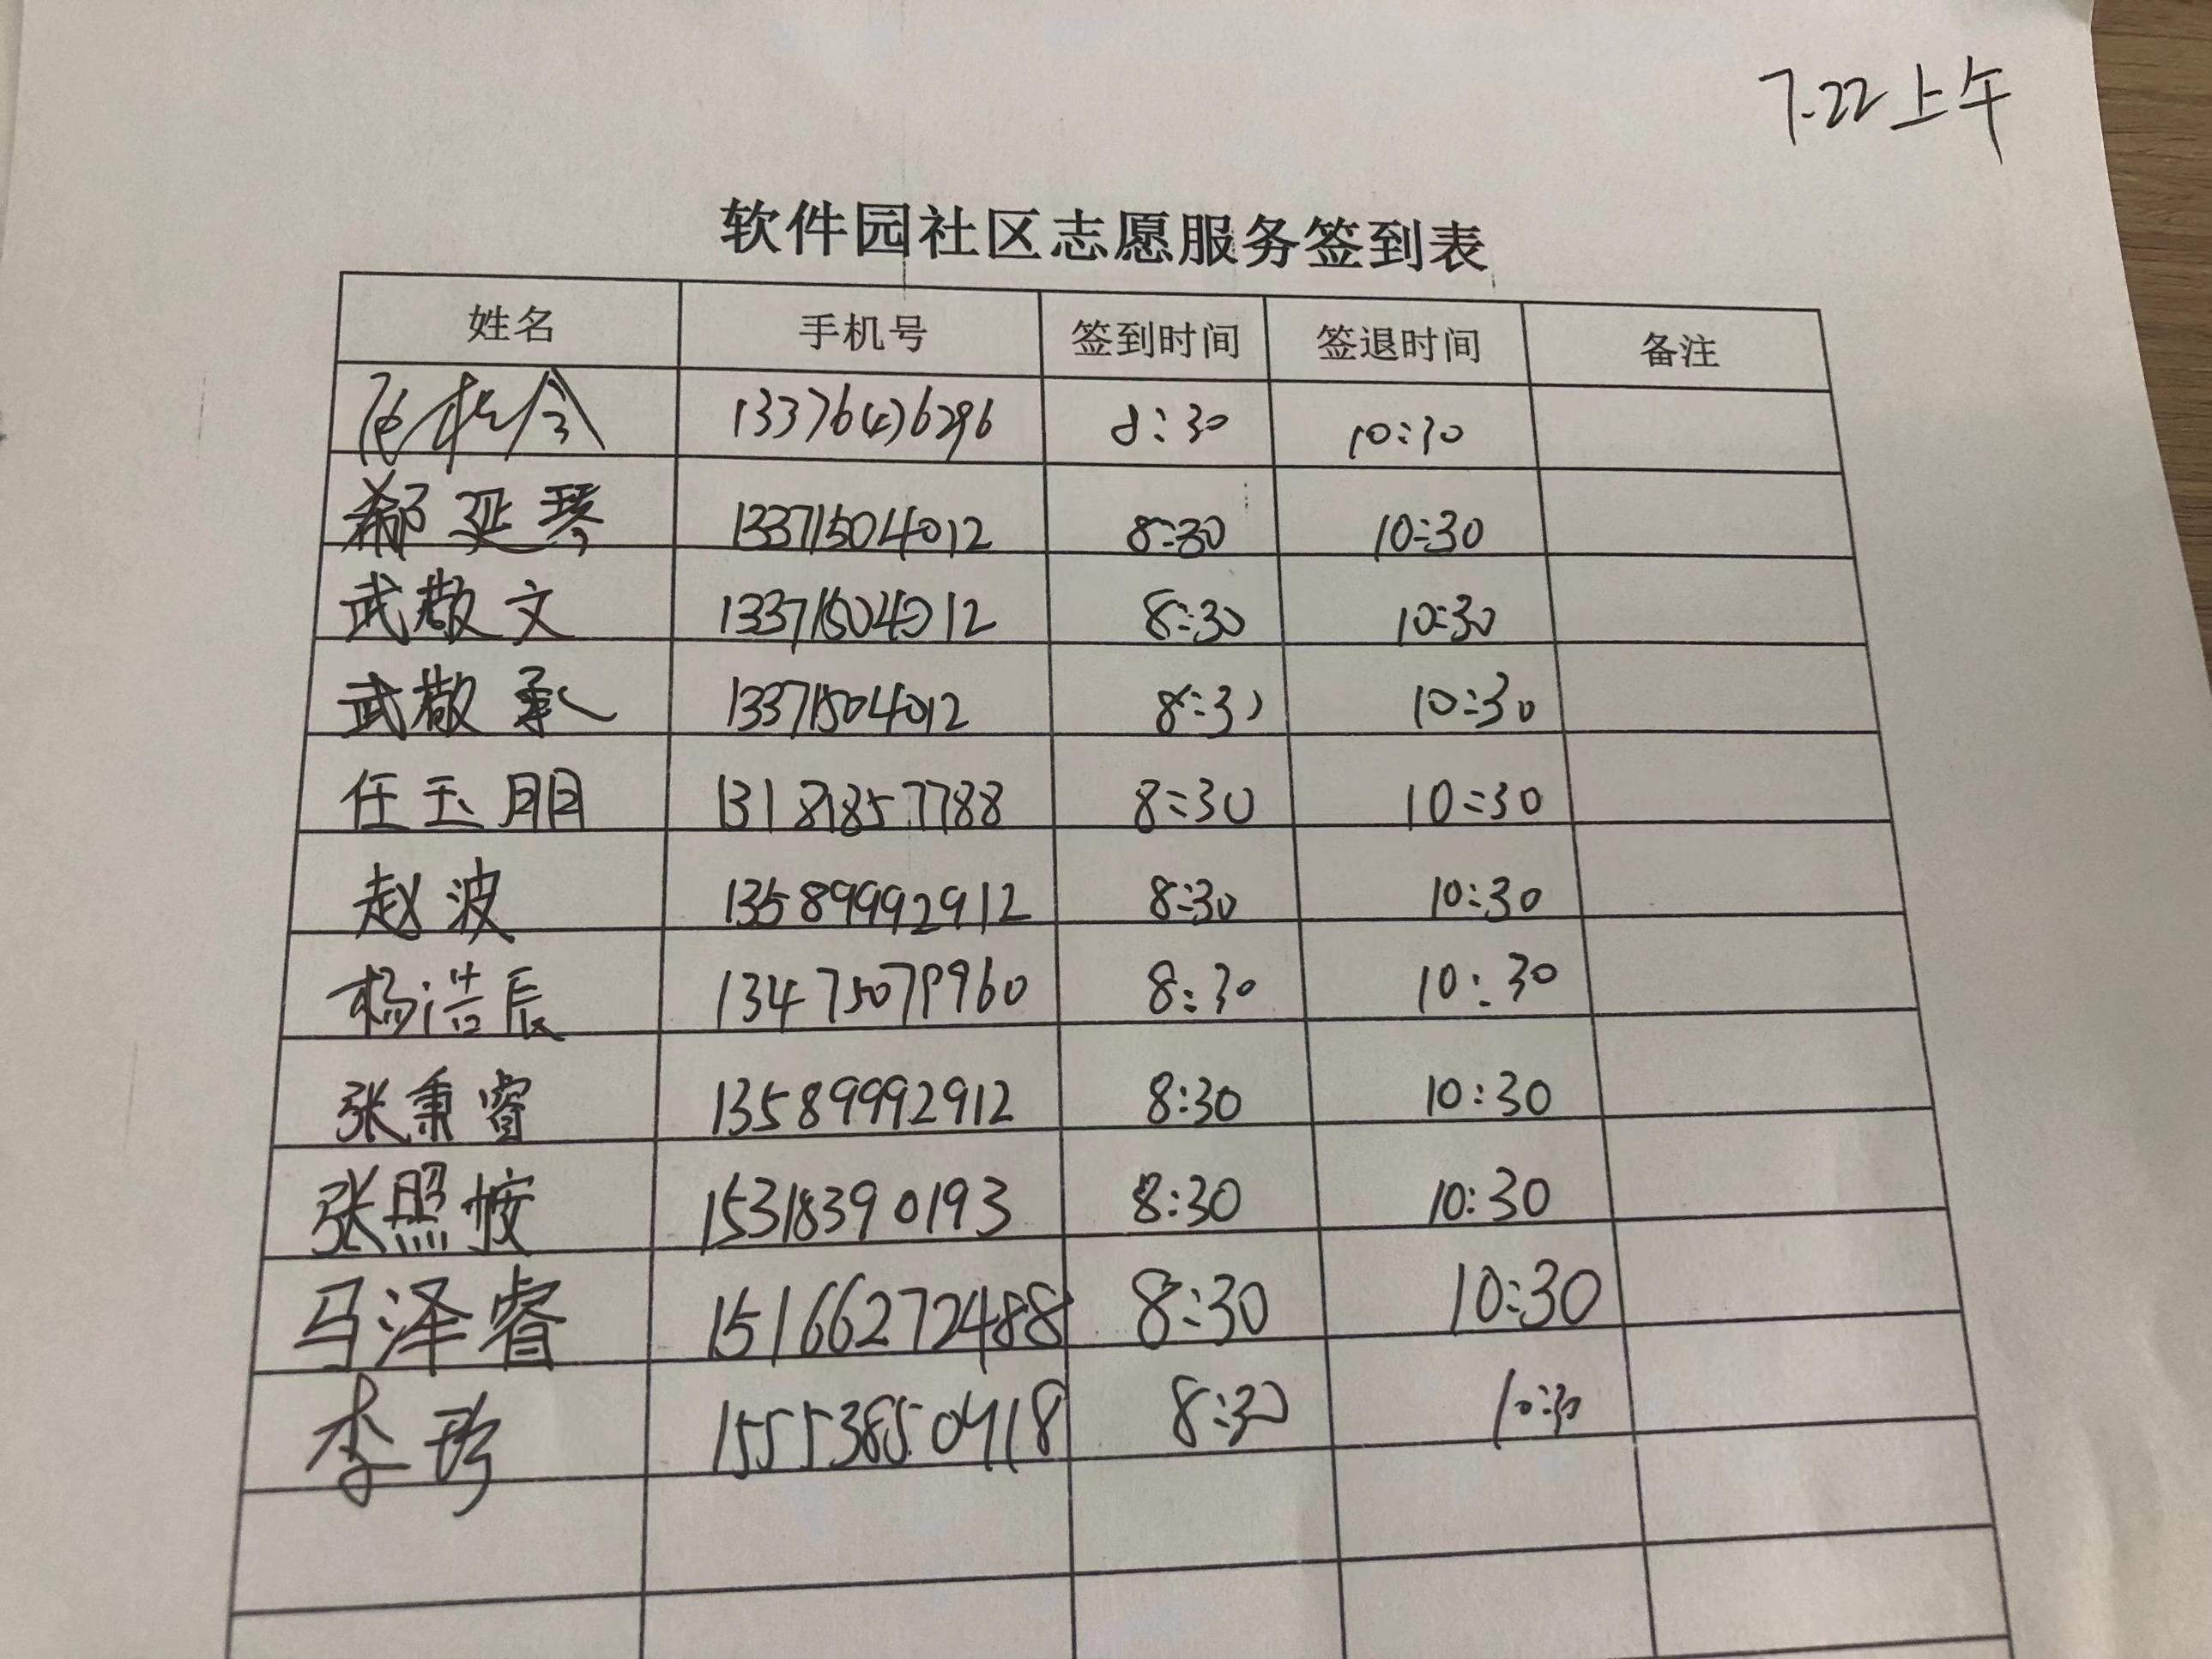 7.22上午
软件园社区志愿服务签到表
姓名 手机号 签到时间 签退时间 备注
13376436296 8:30 10:30
郗延琴 13371504012 8:30 10:30
武敬文 13371504012 8:30 10:30
武敬承 13371504012 8:30 10:30
任玉朋 13181857788 8:30 10:30
赵波 13589992912 8:30 10:30
杨浩辰 13475079960 8:30 10:30
张秉睿 13589992912 8:30 10:30
张照桉 15318390193 8:30 10:30
马泽睿 15166272488 8:30 10:30
李珍 15553850418 8:30 10:30